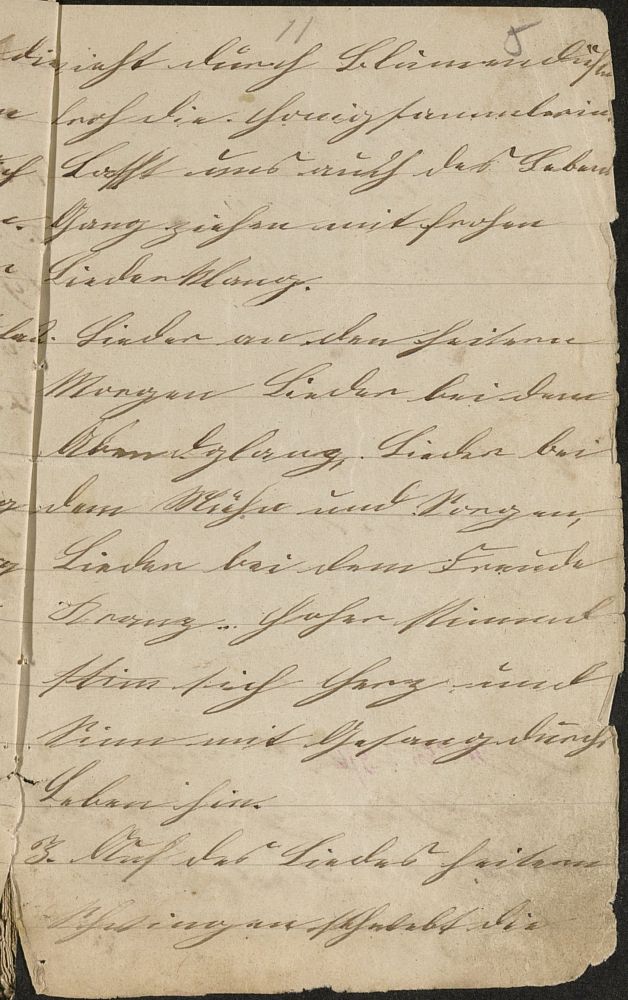 11 5
zieht durch Blumendüfte
froh die Honigsammlerin
Lasst uns auch des Lebens
Gang ziehen mit frohen
Liederklang.
2. Lieder an den heitern
Morgen Lieder bei dem
Abendglanz, Lieder bei
dem Mühn und Sorgen,
Lieder bei dem Freude
Kranz. hoher
stim sich Herz und
Sinn mit Gesang durchs
Leben hin.
3. Auf des Liedes heitern
Schwingen schwebt die